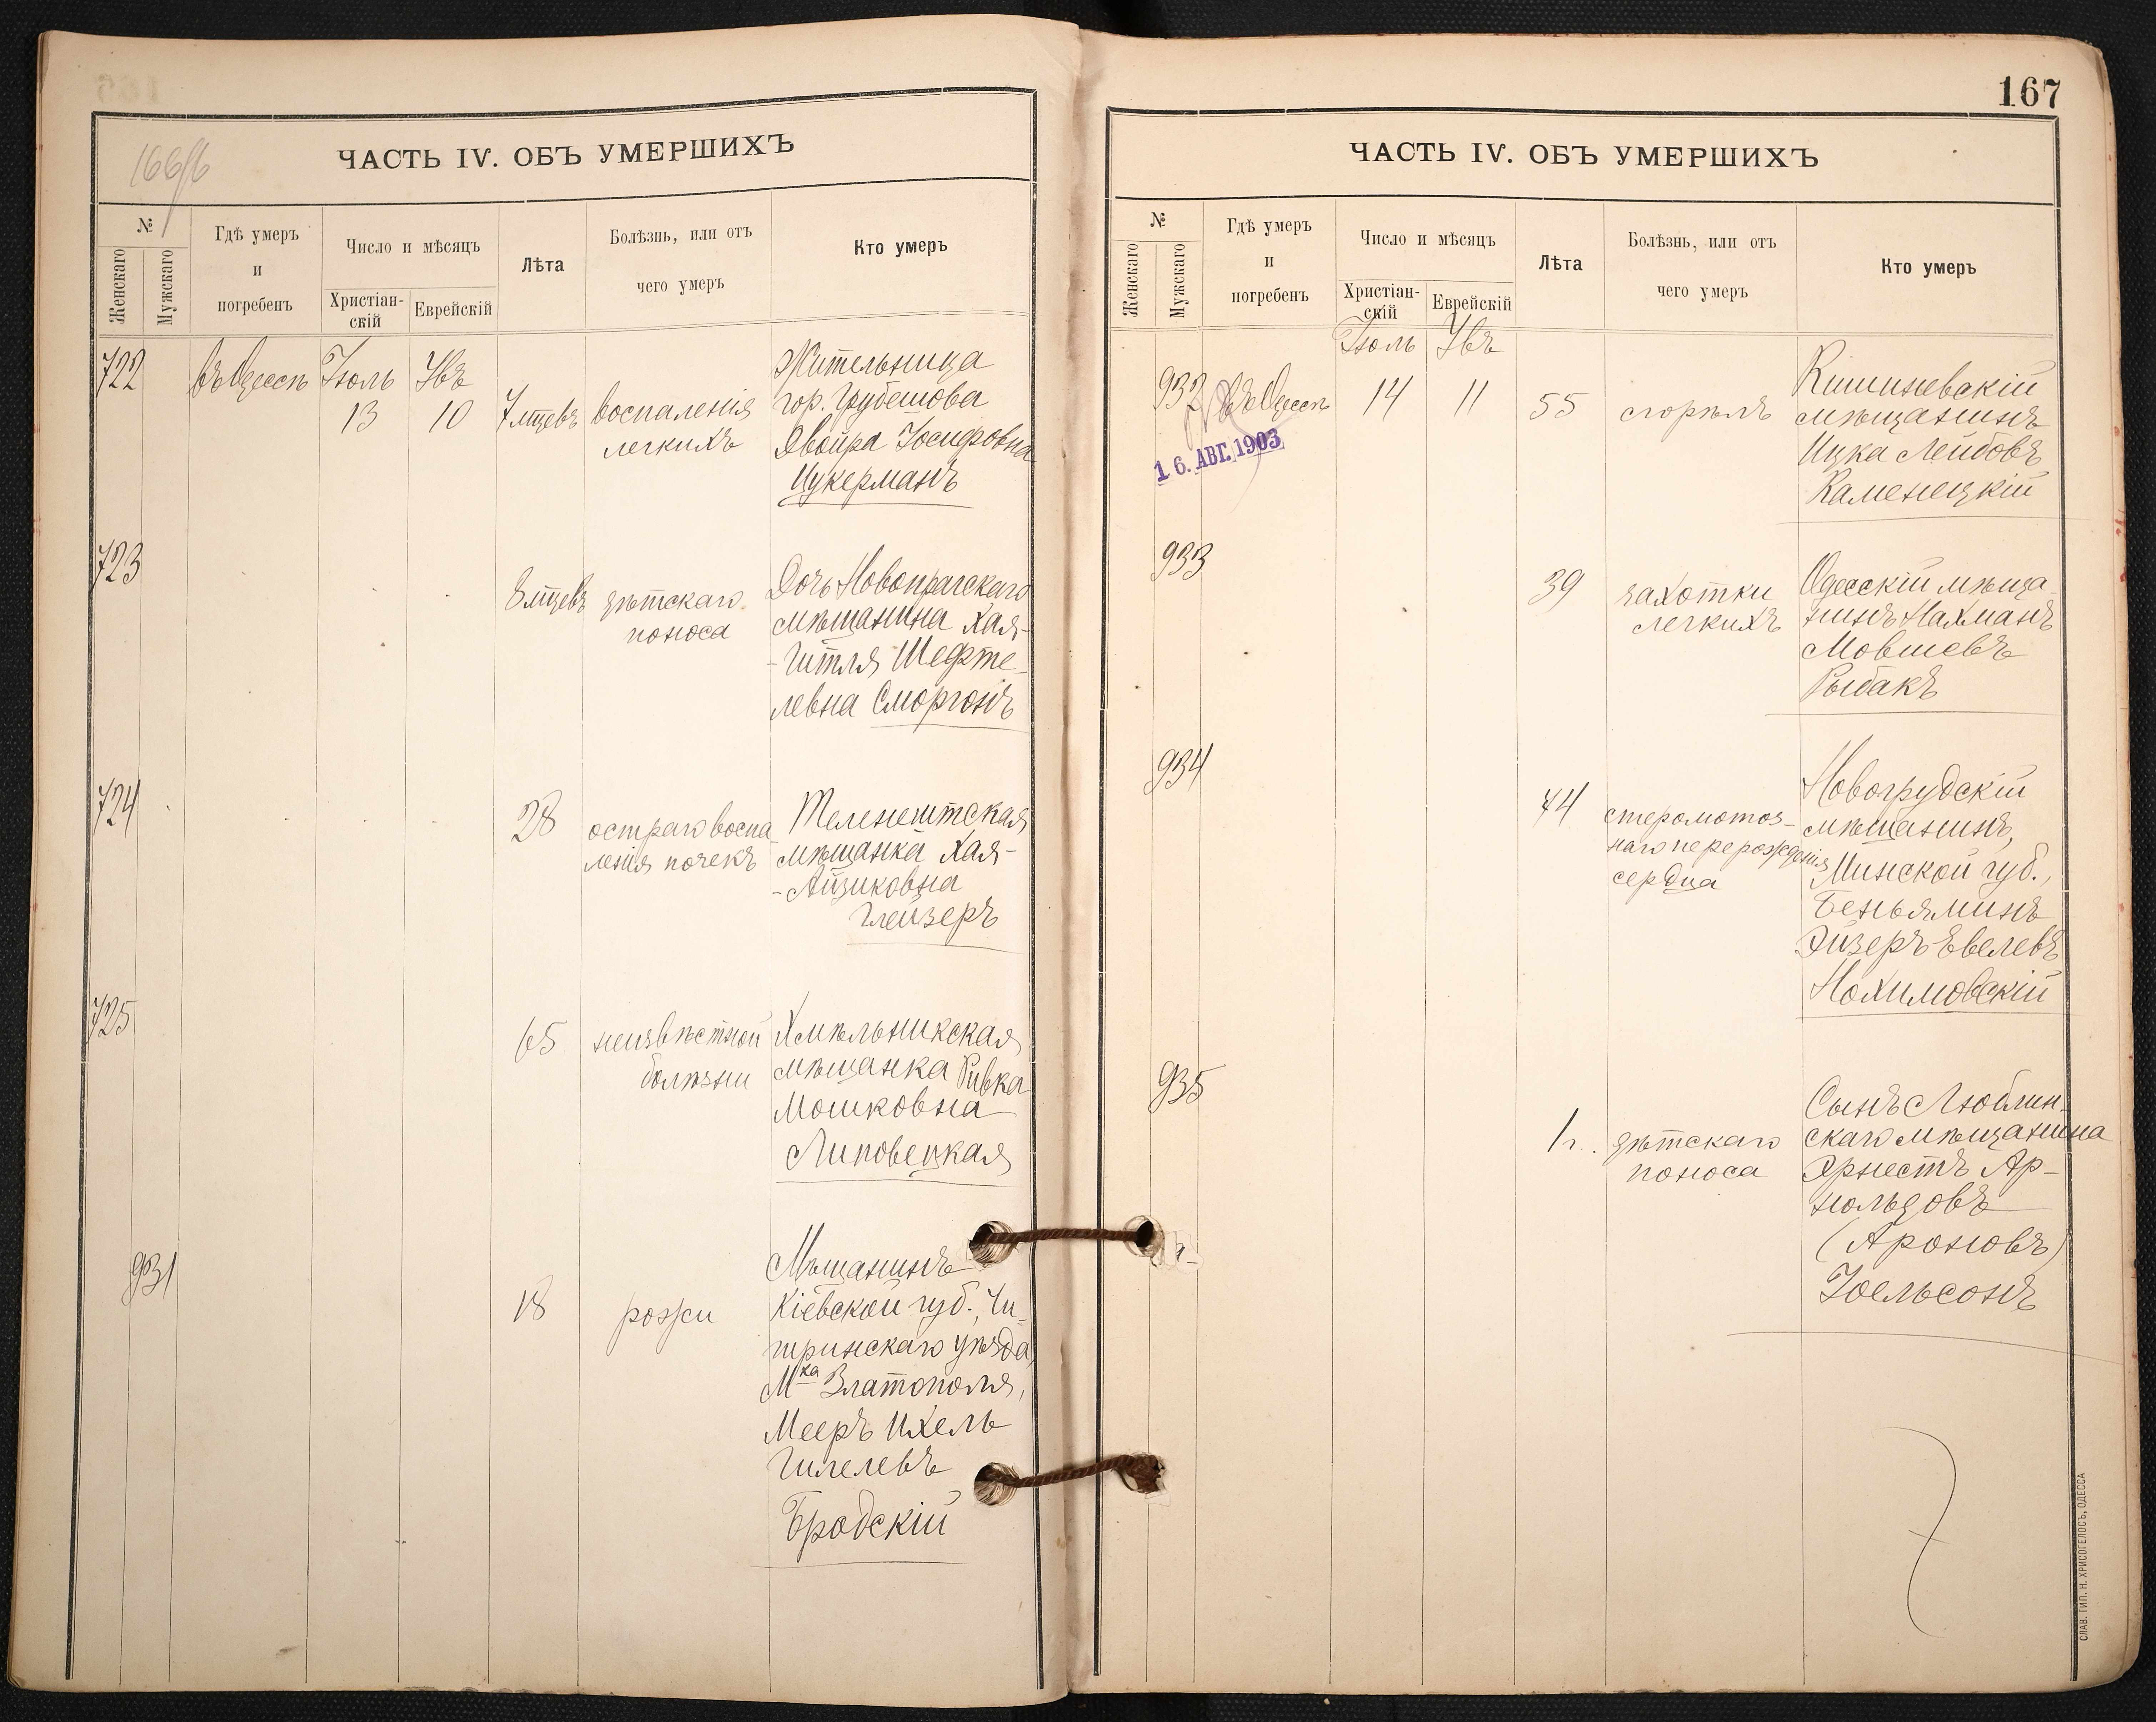 166/б
ЧАСТЬ IV. ОБЪ УМЕРШИХЪ
№
Женскаго
Мужскаго
Гдѣ умеръ
и
погребенъ
Число и мѣсяцъ
Христіан-
скій
Еврейскій
Лѣта
Болѣзнь, или отъ
чего умеръ
Кто умеръ
722
въ Одессѣ
Іюль
13
Увъ
10
7 мцевъ
воспаленія
легкихъ
Жительница
гор. Грубешова
Двойра Іосифовна
Цукерманъ
723
8 мцевъ
дѣтскаго
поноса
Дочь Новопрагскаго
мѣщанина Хая-
-Гитля Шефте-
левна Сморгонъ
724
28
остраго воспа
ленія почекъ
Теленештская
мѣщанка Хая-
-Айзиковна
Глейзеръ
725
65
неизвѣстной
болѣзни
Хмѣльникская
мѣщанка Ривка
Мошковна
Липовецкая
931
18
рожи
Мѣщанинъ
Кіевской губ., Чи-
гиринскаго уѣзда,
М-ка Златополя,
Мееръ Ихель
Гилелевъ
Бродскій
167
ЧАСТЬ IV. ОБЪ УМЕРШИХЪ
№
Женскаго
Мужскаго
Гдѣ умеръ
и
погребенъ
Число и мѣсяцъ
Христіан-
скій
Еврейскій
Лѣта
Болѣзнь, или отъ
чего умеръ
Кто умеръ
Іюль
Увъ
932
въ Одессѣ
14
11
55
сгорѣлъ
Кишиневскій
мѣщанинъ
Ицка Лейбовъ
Каменецкій
16. АВГ. 1903
933
39
чахотки
легкихъ
Одесскій мѣща-
нинъ Нахманъ
Мовшевъ
Рыбакъ
934
44
стероматоз-
наго перерожденія
сердца
Новогрудскій
мѣщанинъ,
Минской губ.,
Беньяминъ
Эйзеръ-Евелевъ
Нохимовскій
935
1 г.
дѣтскаго
поноса
Сынъ Люблин-
скаго мѣщанина
Эрнестъ Ар-
нольдовъ
(Ароновъ)
Іоельсонъ
СЛАВ. ТИП. Н. ХРИСОГЕЛОСЪ, ОДЕССА